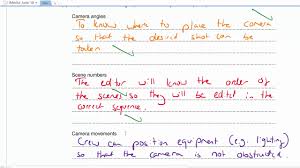 Camera angles
To know where to place the camera
so that the desired shot can be
taken
Scene numbers
The editor will know the order of
the scenes so they will be edited in the
correct sequence.
Camera movements
Crew can position equipment (e.g. lighting)
so that the camera is not obstructed